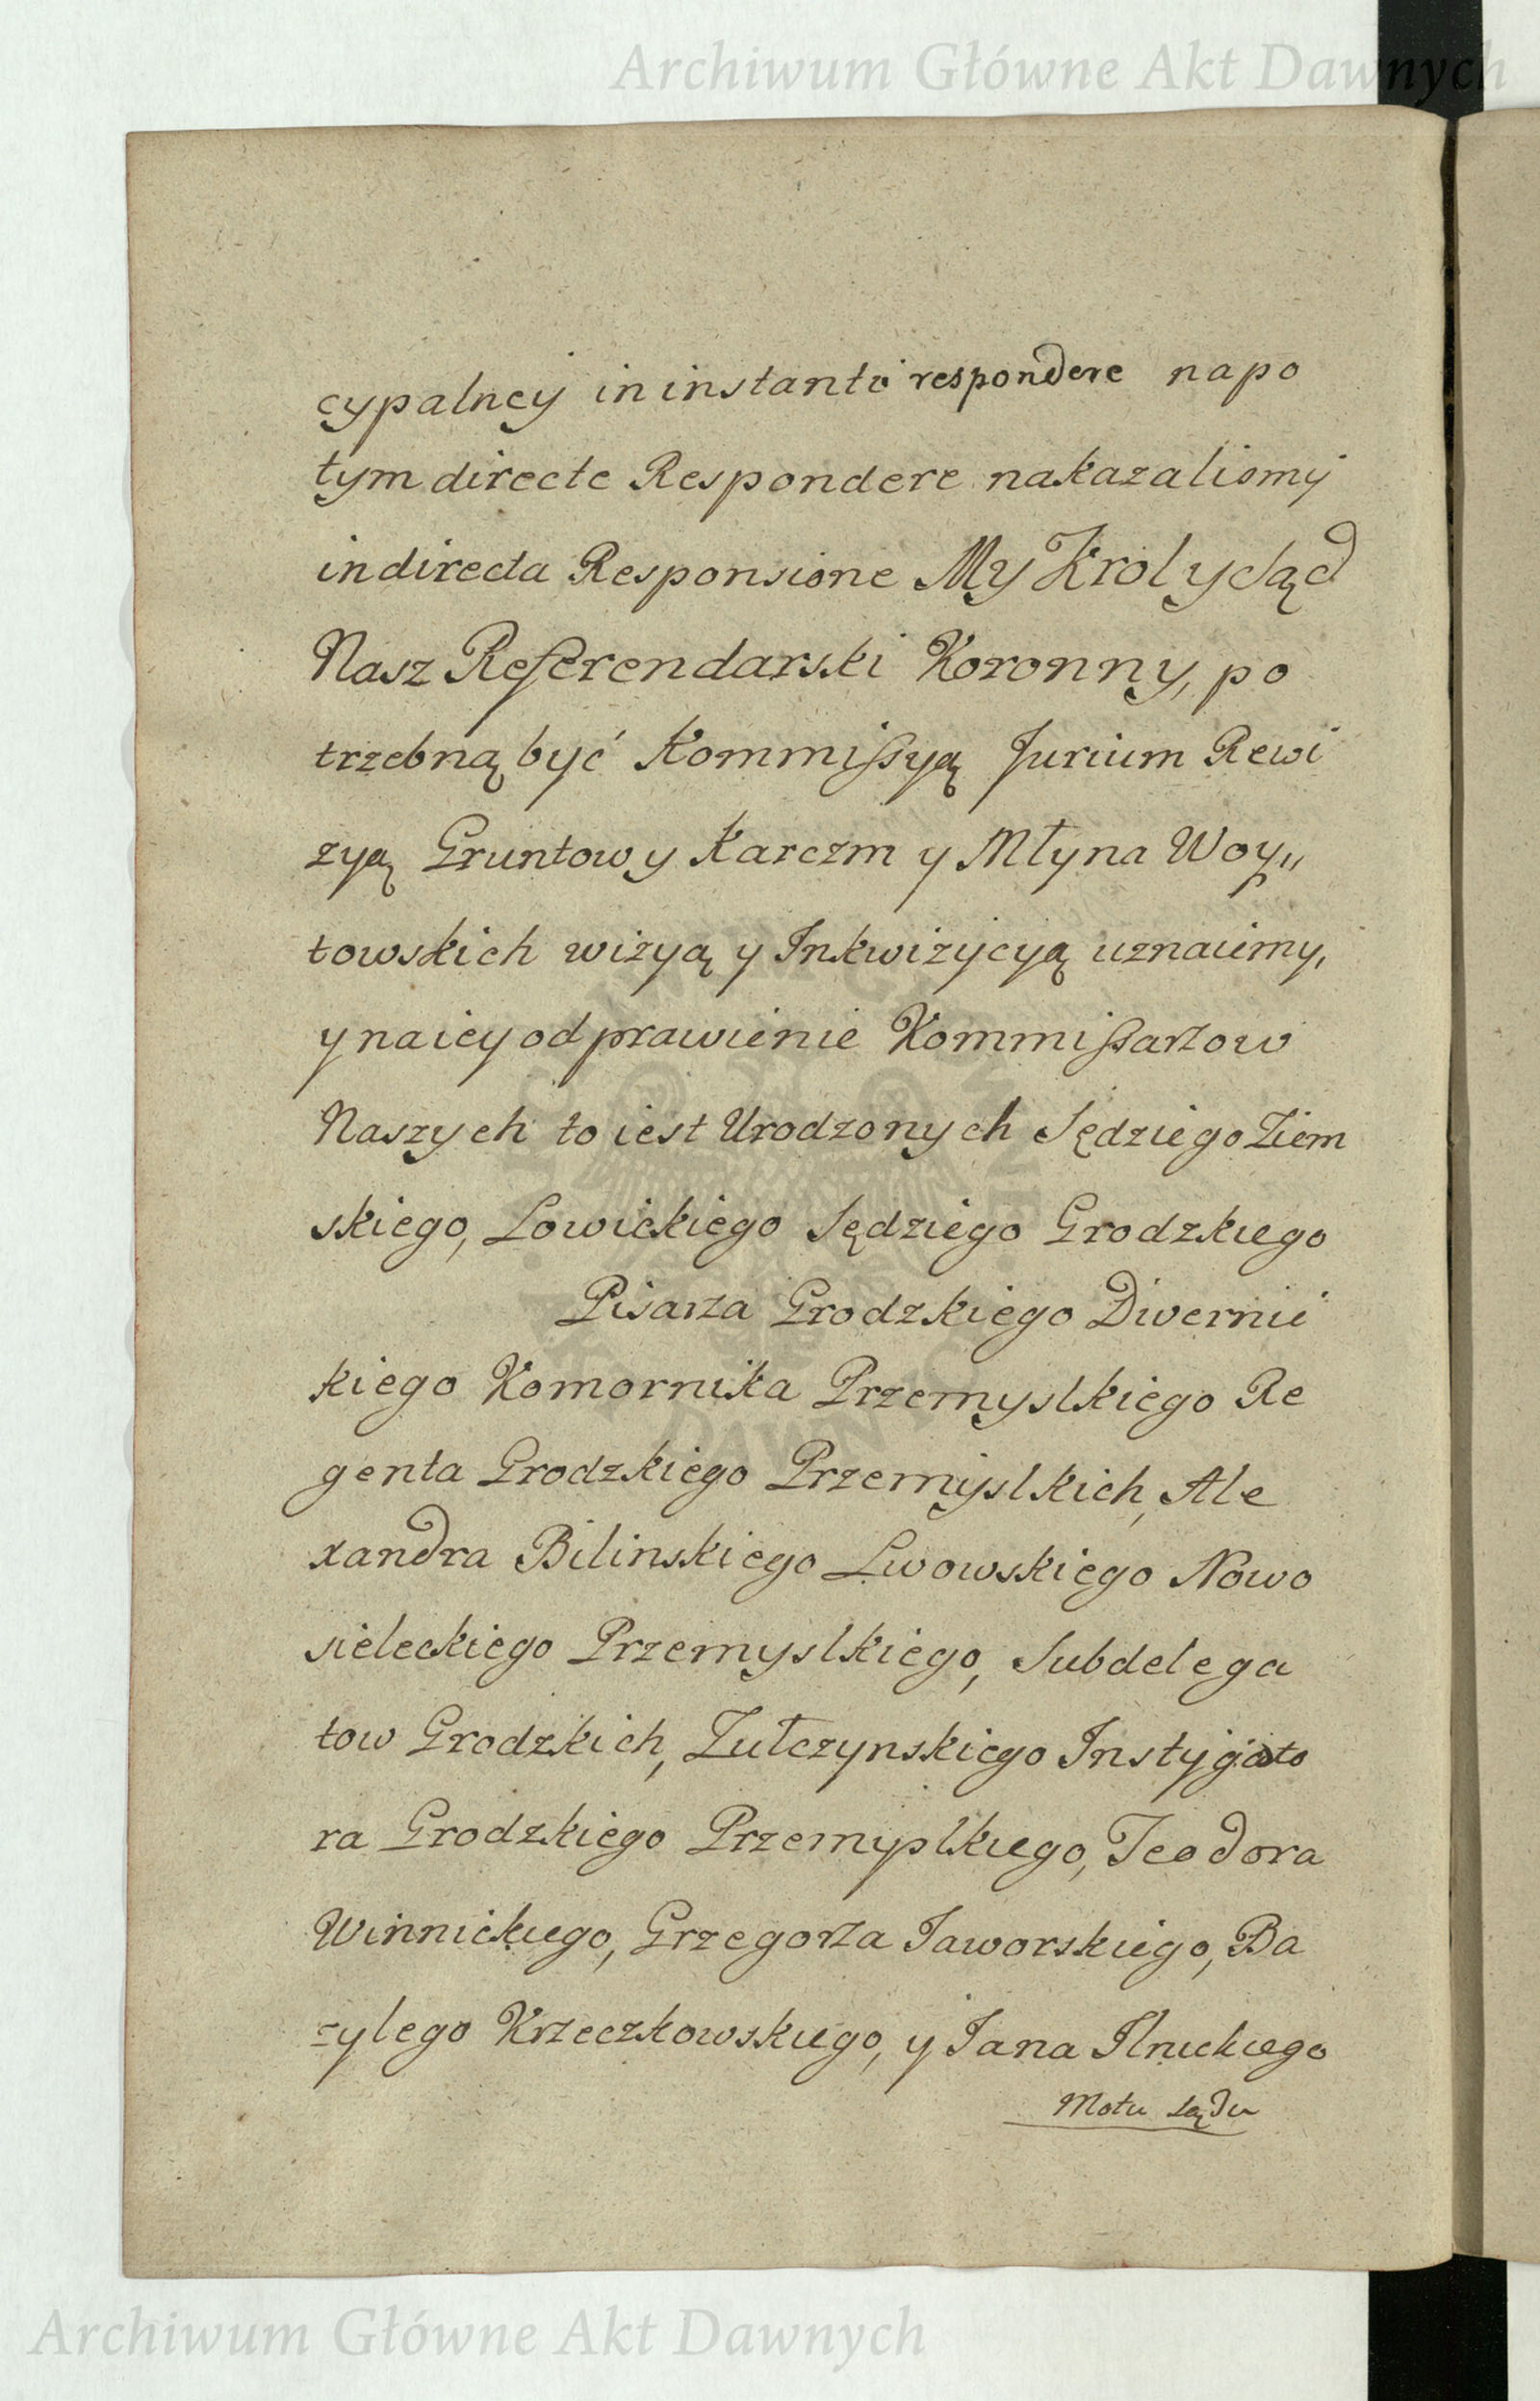 Archiwum Główne Akt Dawnych
cypalney in instanti respondere napo
tym directe Respondere nakazalismy
in directa Responsione My Krol y Sąd
Nasz Referendarski Koronny, po
trzebną być Kommissyą Jurium Rewi
zyą Gruntow y Karczm y Młyna Woy„
towskich wizyą y Inkwizycyą uznaiemy,
y na iey odprawienie Kommissarzow
Naszych to iest Urodzonych Sędziego Ziem
skiego, Lowickiego Sędziego Grodzkiego
Pisarza Grodzkiego Diwernic
kiego Komornika Przemyslkiego Re
genta Grodzkiego Przemyslkich, Ale
xandra Bilinskiego Lwowskiego Nowo
sieleckiego Przemyslkiego, Subdelega
tow Grodzkich, Zułczynskiego Instygato
ra Grodzkiego Przemyslkiego, Teodora
Winnickiego, Grzegorza Jaworskiego, Ba
zylego Krzeczkowskiego, y Jana Ilnickiego
Motu Sądu
Archiwum Główne Akt Dawnych